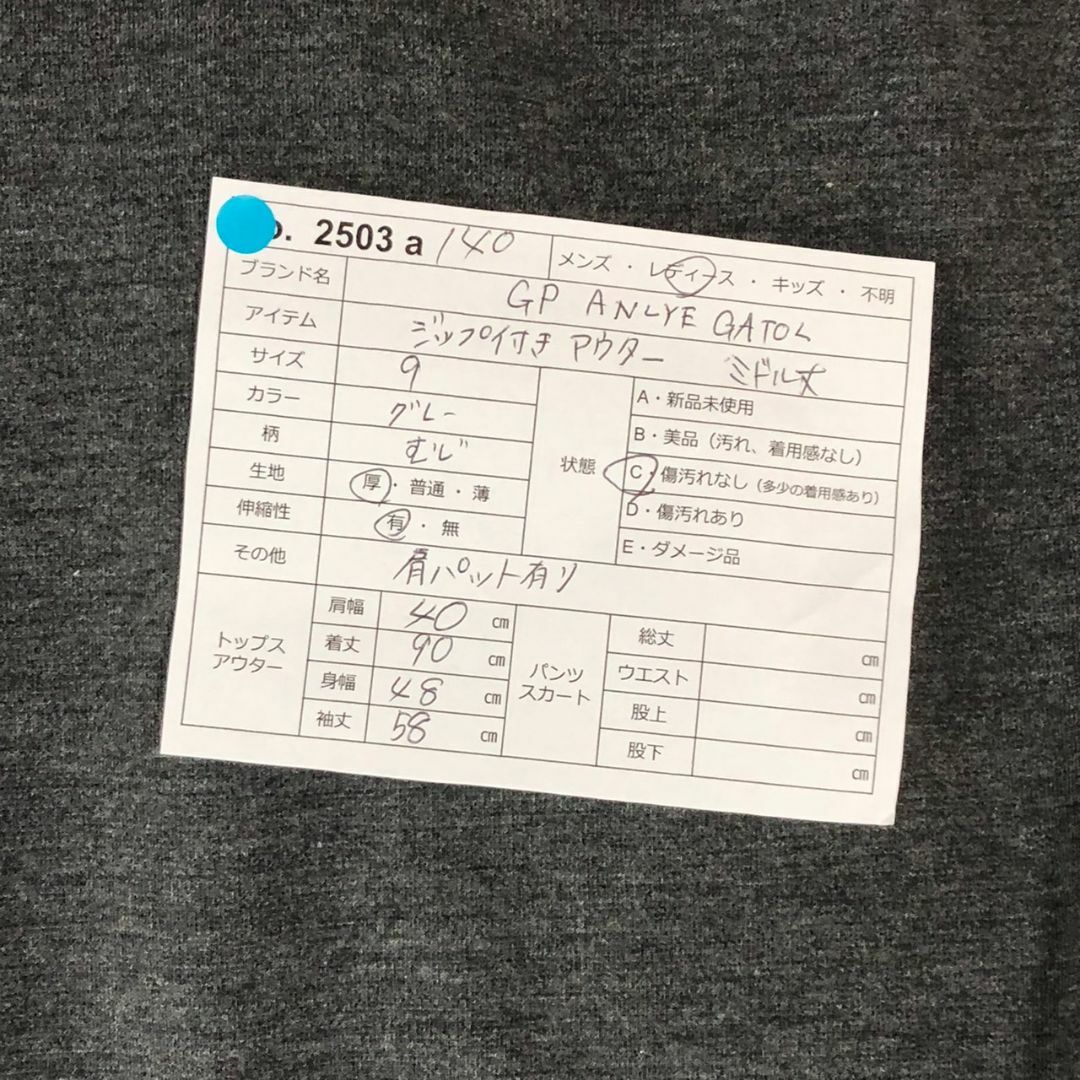 o. 2503 a 140 メンズ ・ レディース ・ キッズ ・ 不明
ブランド名 GP ANLYE GATOL
アイテム ジップ付き アウター ミドル丈
サイズ 9
カラー グレー
柄 むじ
生地 厚 ・ 普通 ・ 薄
伸縮性 有 ・ 無
状態
A・新品未使用
B・美品（汚れ、着用感なし）
C・傷汚れなし（多少の着用感あり）
D・傷汚れあり
E・ダメージ品
その他 肩パット有り
トップス
アウター
肩幅 40 ㎝
着丈 90 ㎝
身幅 48 ㎝
袖丈 58 ㎝
パンツ
スカート
総丈 ㎝
ウエスト ㎝
股上 ㎝
股下 ㎝